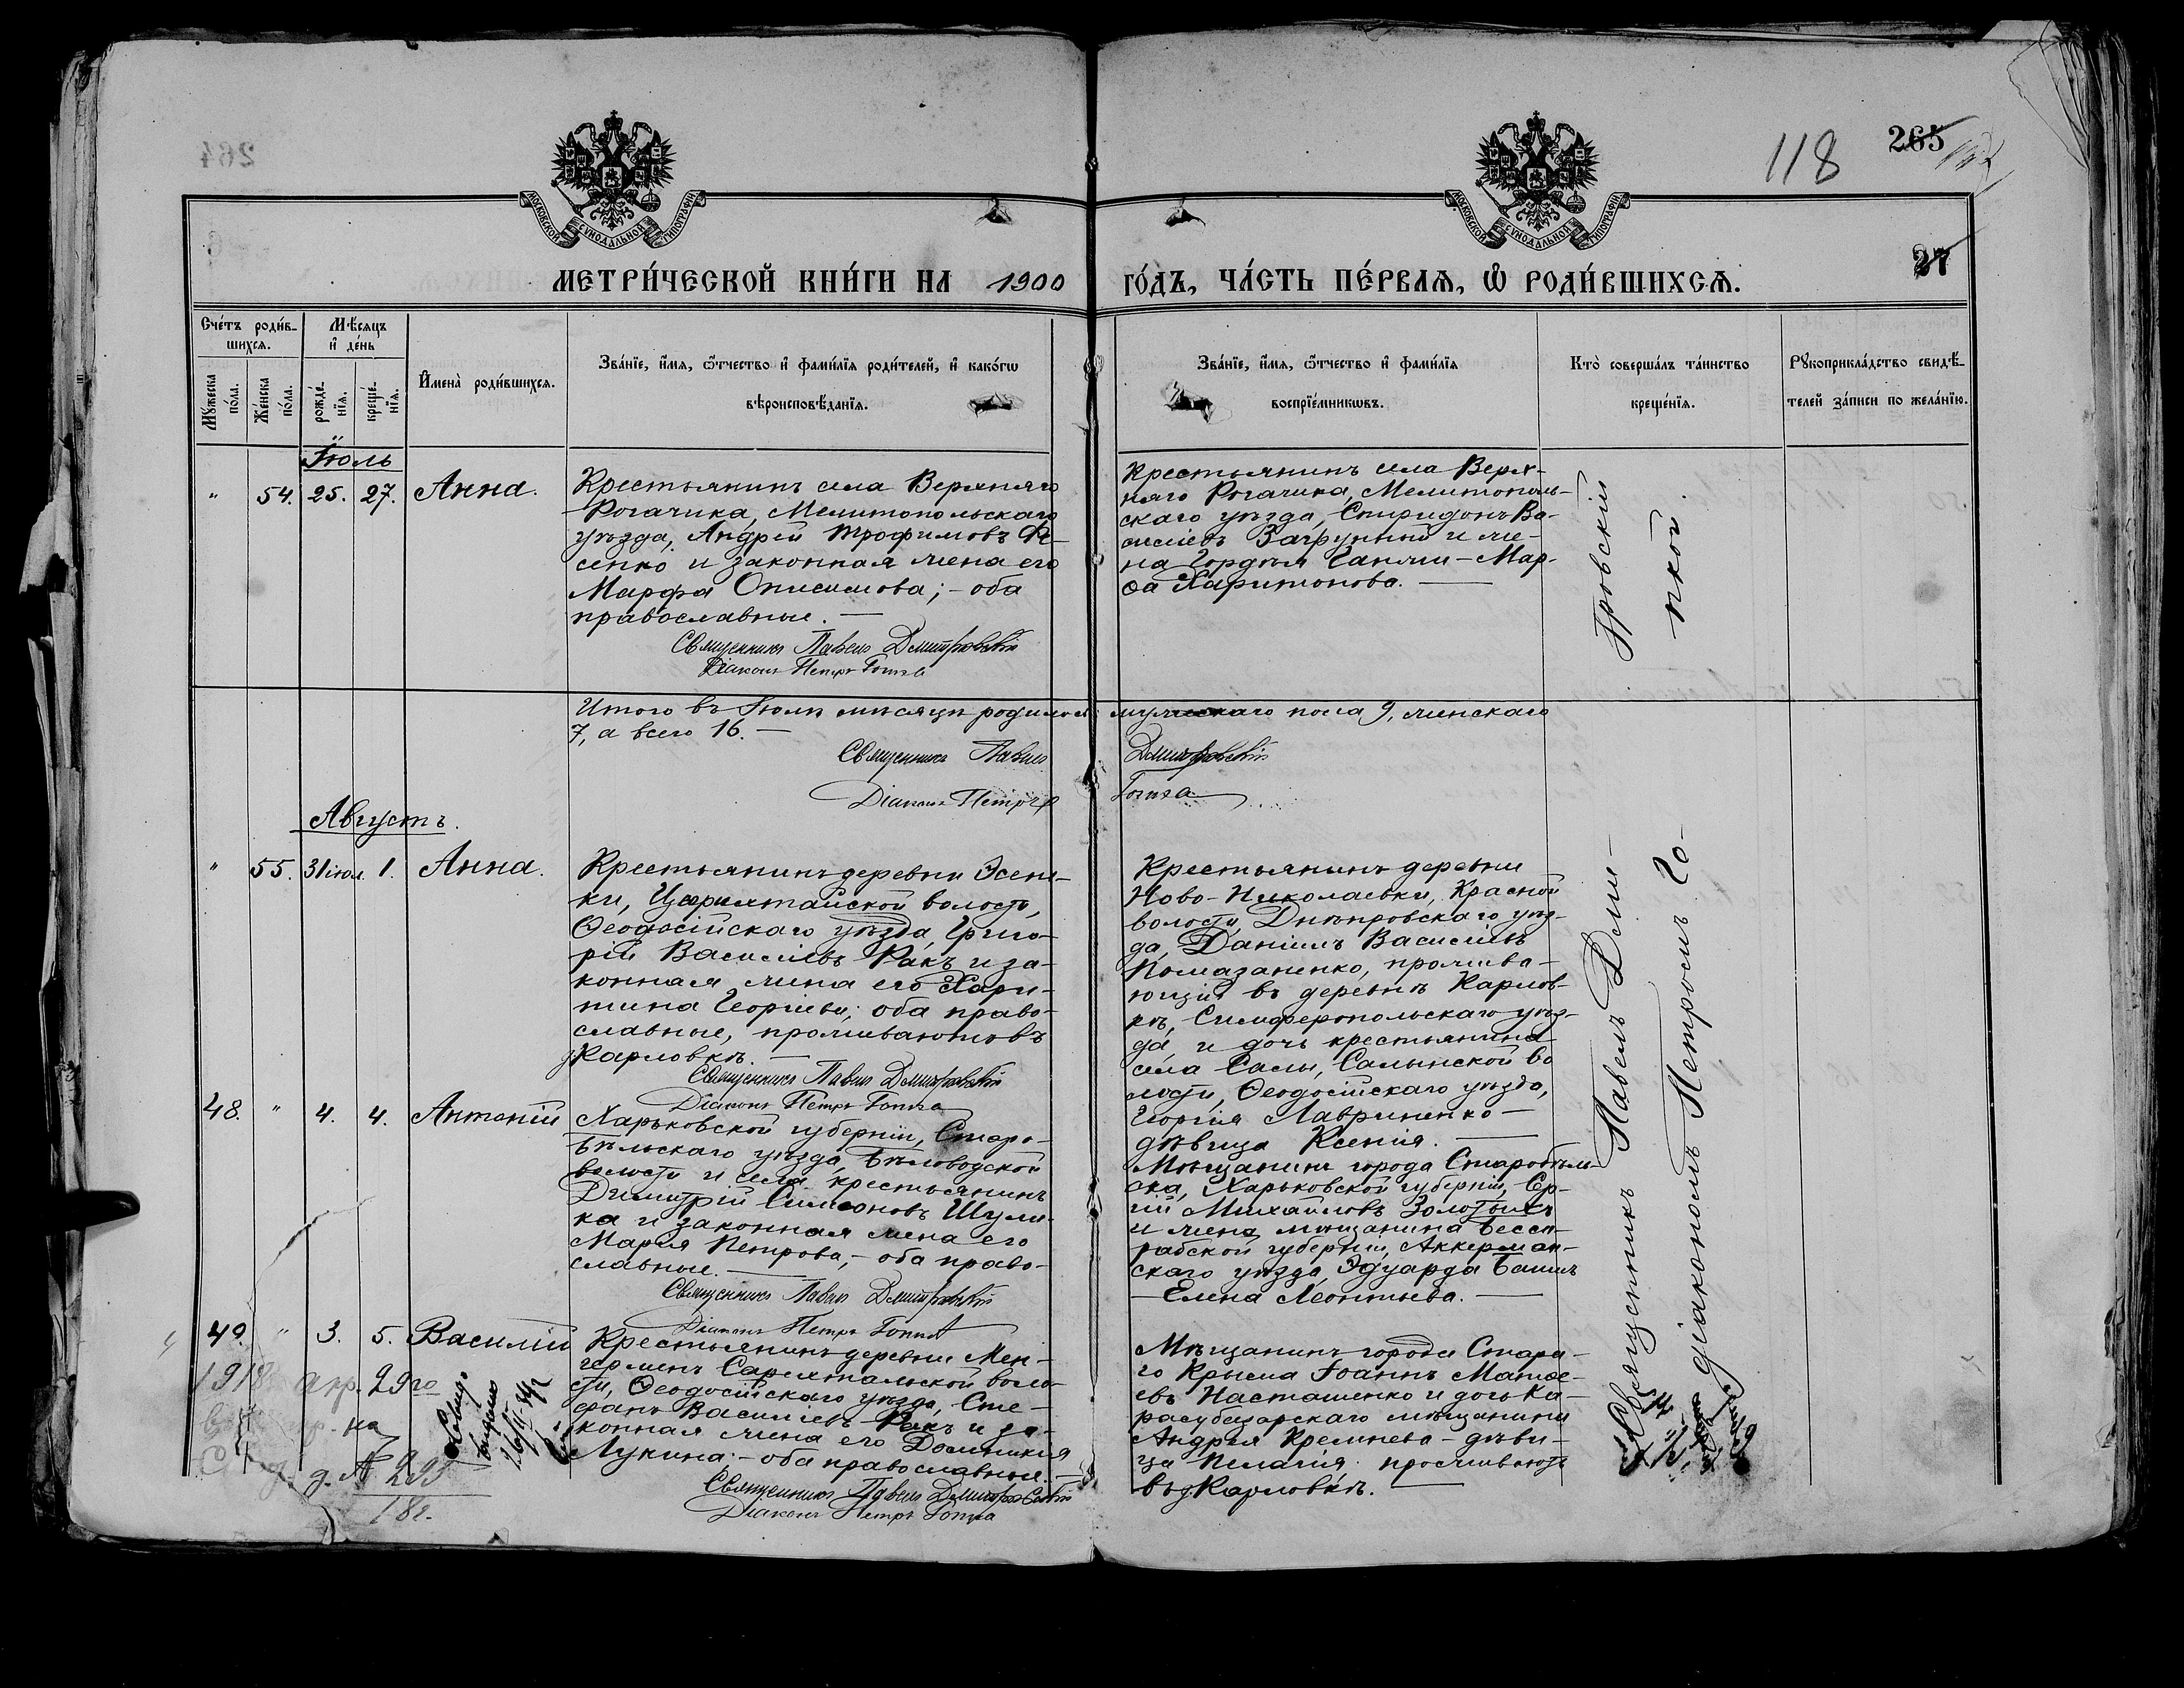 264
118
265
МОСКОВСКОЙ СѴНОДАЛЬНОЙ ТИПОГРАФІИ
МОСКОВСКОЙ СѴНОДАЛЬНОЙ ТИПОГРАФІИ
27
МЕТРИ́ЧЕСКОЙ КНИ́ГИ НА 1900 ГО́ДЪ, ЧА́СТЬ ПЕ́РВАѦ, Ѽ РОДИ́ВШИХСѦ.
Сче́тъ роди́в-
шихсѧ.
Мꙋ́жеска по́ла.
Же́нска по́ла.
Мѣ́сѧцъ и҆ де́нь
рожде́-
нїѧ.
креще́-
нїѧ.
И҆мена̀ роди́вшихсѧ.
Зва́нїе, и҆́мѧ, ѻ҆́тчество и҆ фами́лїѧ роди́телей, и҆ како́гѡ
вѣроисповѣ́данїѧ.
Зва́нїе, и҆́мѧ, ѻ҆́тчество и҆ фами́лїѧ
воспрїе́мникѡвъ.
Кто̀ соверша́лъ та́инство
креще́нїѧ.
Рꙋкоприкла́дство свидѣ́-
телей за́писи по жела́нїю.
Іюль
" 54. 25. 27. Анна.
Крестьянинъ села Верхняго
Рогачика, Мелитопольскаго
уѣзда, Андрей Трофимовъ Фе-
сенко и законная жена его
Марфа Онисимова; - оба
православные. —
Священникъ Павелъ Дмитровскій
Діаконъ Петръ Гопка
Крестьянинъ села Верх-
няго Рогачика, Мелитополь-
скаго уѣзда, Спиридонъ Ва-
сильевъ Загрунный и же-
на Гордѣя Ганжи - Мар-
ѳа Харитонова. —
Итого въ Іюлѣ мѣсяцѣ родилось мужескаго пола 9, женскаго
7, а всего 16. —
Священникъ Павелъ Дмитровскій
Діаконъ Петръ Гопка
Августъ.
" 55. 31 іюл. 1. Анна.
Крестьянинъ деревни Эсень-
ки, Цюрихтальской волости,
Ѳеодосійскаго уѣзда, Григо-
рій Васильевъ Ракъ и за-
конная жена его Хари-
тина Георгіева; оба право-
славные, проживаютъ въ
д. Карловкѣ. —
Священникъ Павелъ Дмитровскій
Діаконъ Петръ Гопка
Крестьянинъ деревни
Ново-Николаевки, Красной
волости, Днѣпровскаго уѣз-
да, Даніилъ Васильевъ
Помазаненко, прожива-
ющій въ деревнѣ Карлов-
кѣ, Симферопольскаго уѣз-
да и дочь крестьянина
села Салы, Салынской во
лости, Ѳеодосійскаго уѣзда,
Георгія Лавриненко —
дѣвица Ксенія. —
48. " 4. 4. Антоній
Харьковской губерніи, Старо-
бѣльскаго уѣзда, Бѣловодской
волости и села крестьянинъ
Димитрій Симеоновъ Шули-
ка и законная жена его
Марія Петрова, - оба право-
славные. —
Священникъ Павелъ Дмитровскій
Діаконъ Петръ Гопка
Мѣщанинъ города Старобѣль-
ска, Харьковской губерніи, Сер-
гій Михайловъ Золотыхъ
и жена мѣщанина Бесса-
рабской губерніи, Аккерман-
скаго уѣзда, Эдуарда Башъ
— Елена Леонтьева. —
49. " 3. 5. Василій
Крестьянинъ деревни Мен-
герменъ Сарыхтальской воло-
сти, Ѳеодосійскаго уѣзда, Сте-
фанъ Васильевъ Ракъ и за-
конная жена его Домникия
Лукина; - оба православные. —
Священникъ Павелъ Дмитровскій
Діаконъ Петръ Гопка
Мѣщанинъ города Стара-
го Крыма Іоаннъ Матѳе-
евъ Насташенко и дочь Ка-
расубазарскаго мѣщанина
Андрея Кремнева - дѣви-
ца Пелагія проживаютъ
въ д. Карловкѣ. —
1918
апр. 29го
на
д. № 293
18 г.
Священникъ Павелъ Дми-
тровскій
діакономъ Петромъ Го-
пкой.